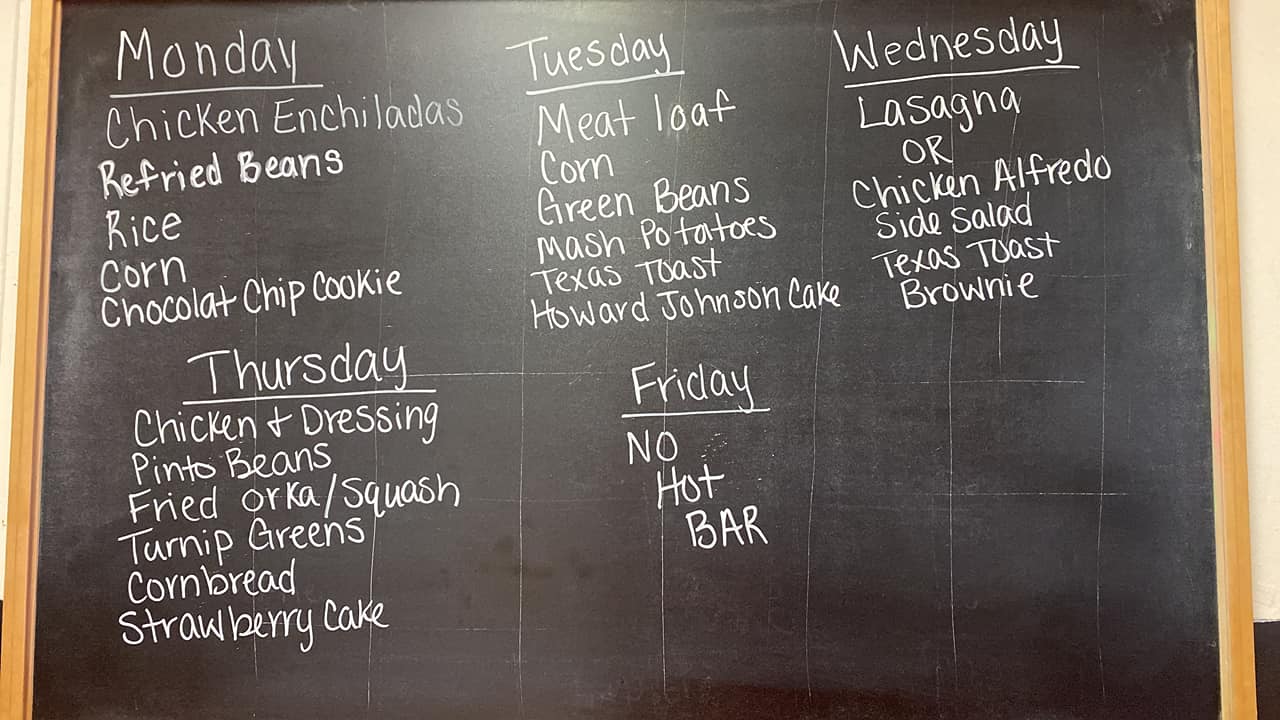 Monday
Chicken Enchiladas
Refried Beans
Rice
Corn
Chocolat Chip Cookie
Tuesday
Meat loaf
Corn
Green Beans
Mash Potatoes
Texas Toast
Howard Johnson Cake
Wednesday
Lasagna
OR
Chicken Alfredo
Side Salad
Texas Toast
Brownie
Thursday
Chicken + Dressing
Pinto Beans
Fried orka/Squash
Turnip Greens
Cornbread
Strawberry Cake
Friday
NO
Hot
BAR